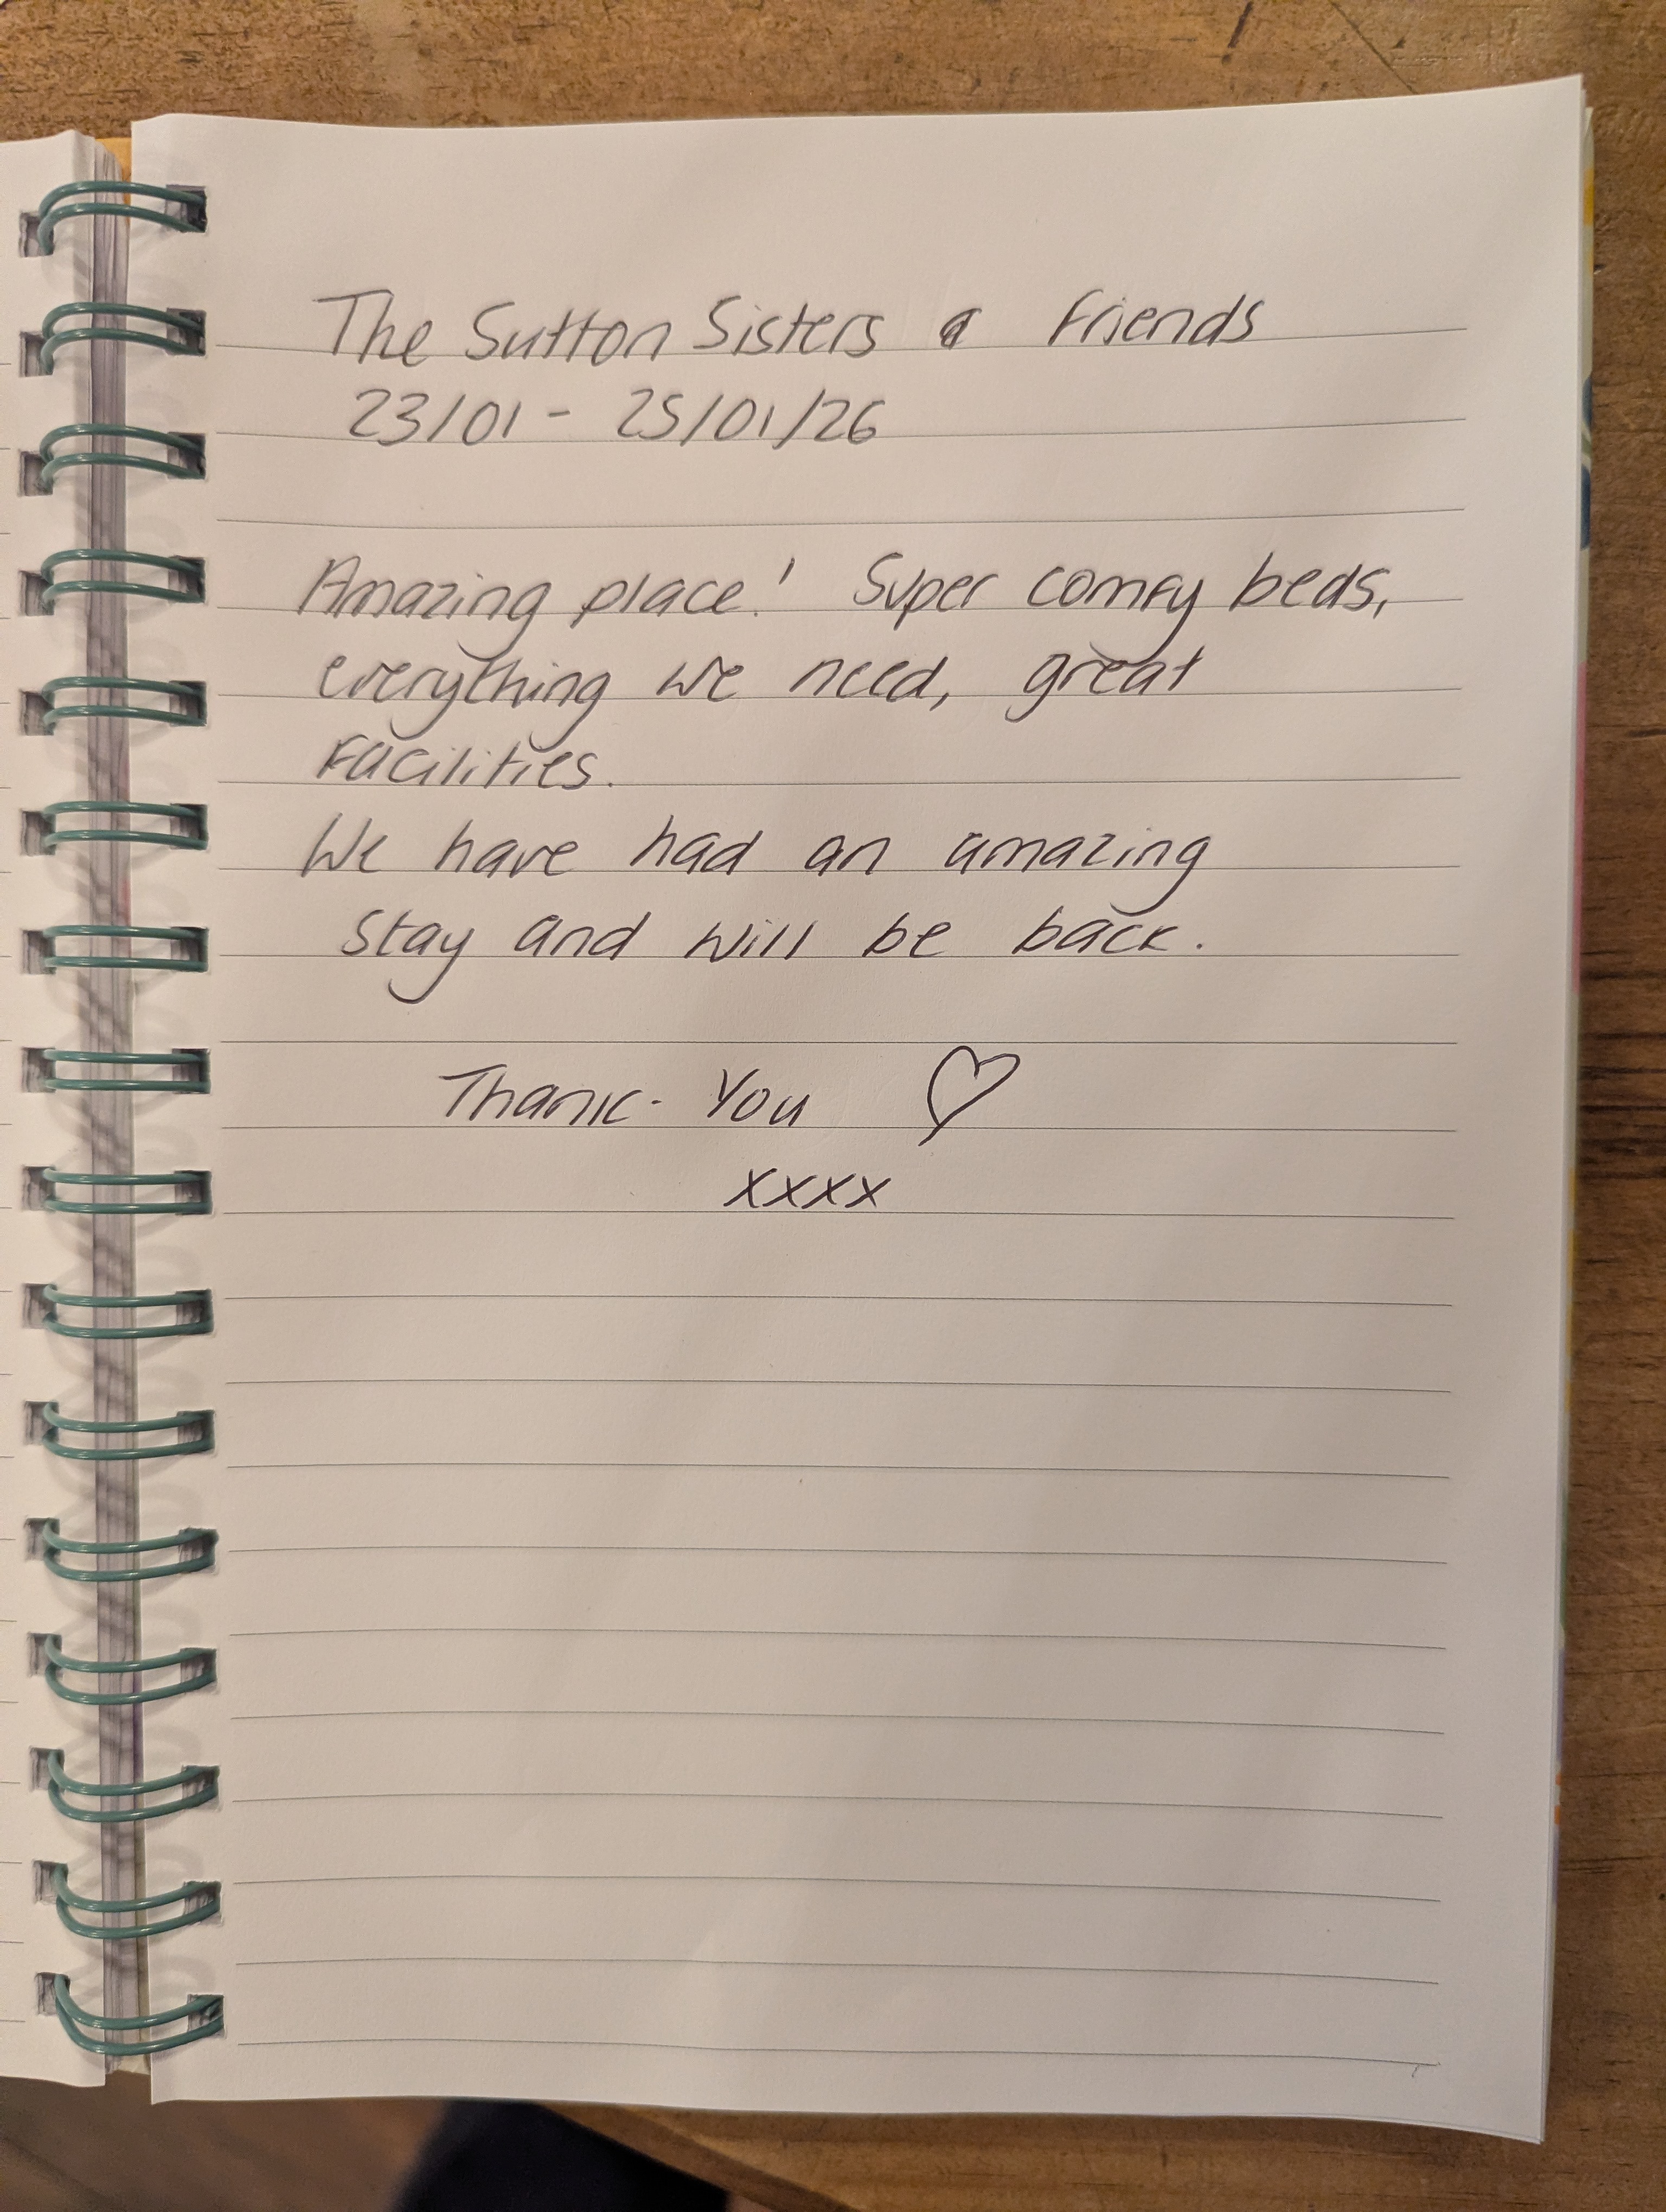 The Sutton Sisters & Friends
23/01 - 25/01/26
Amazing place! Super comfy beds,
everything we need, great
facilities.
We have had an amazing
stay and will be back.
Thank-You ♡
xxxx